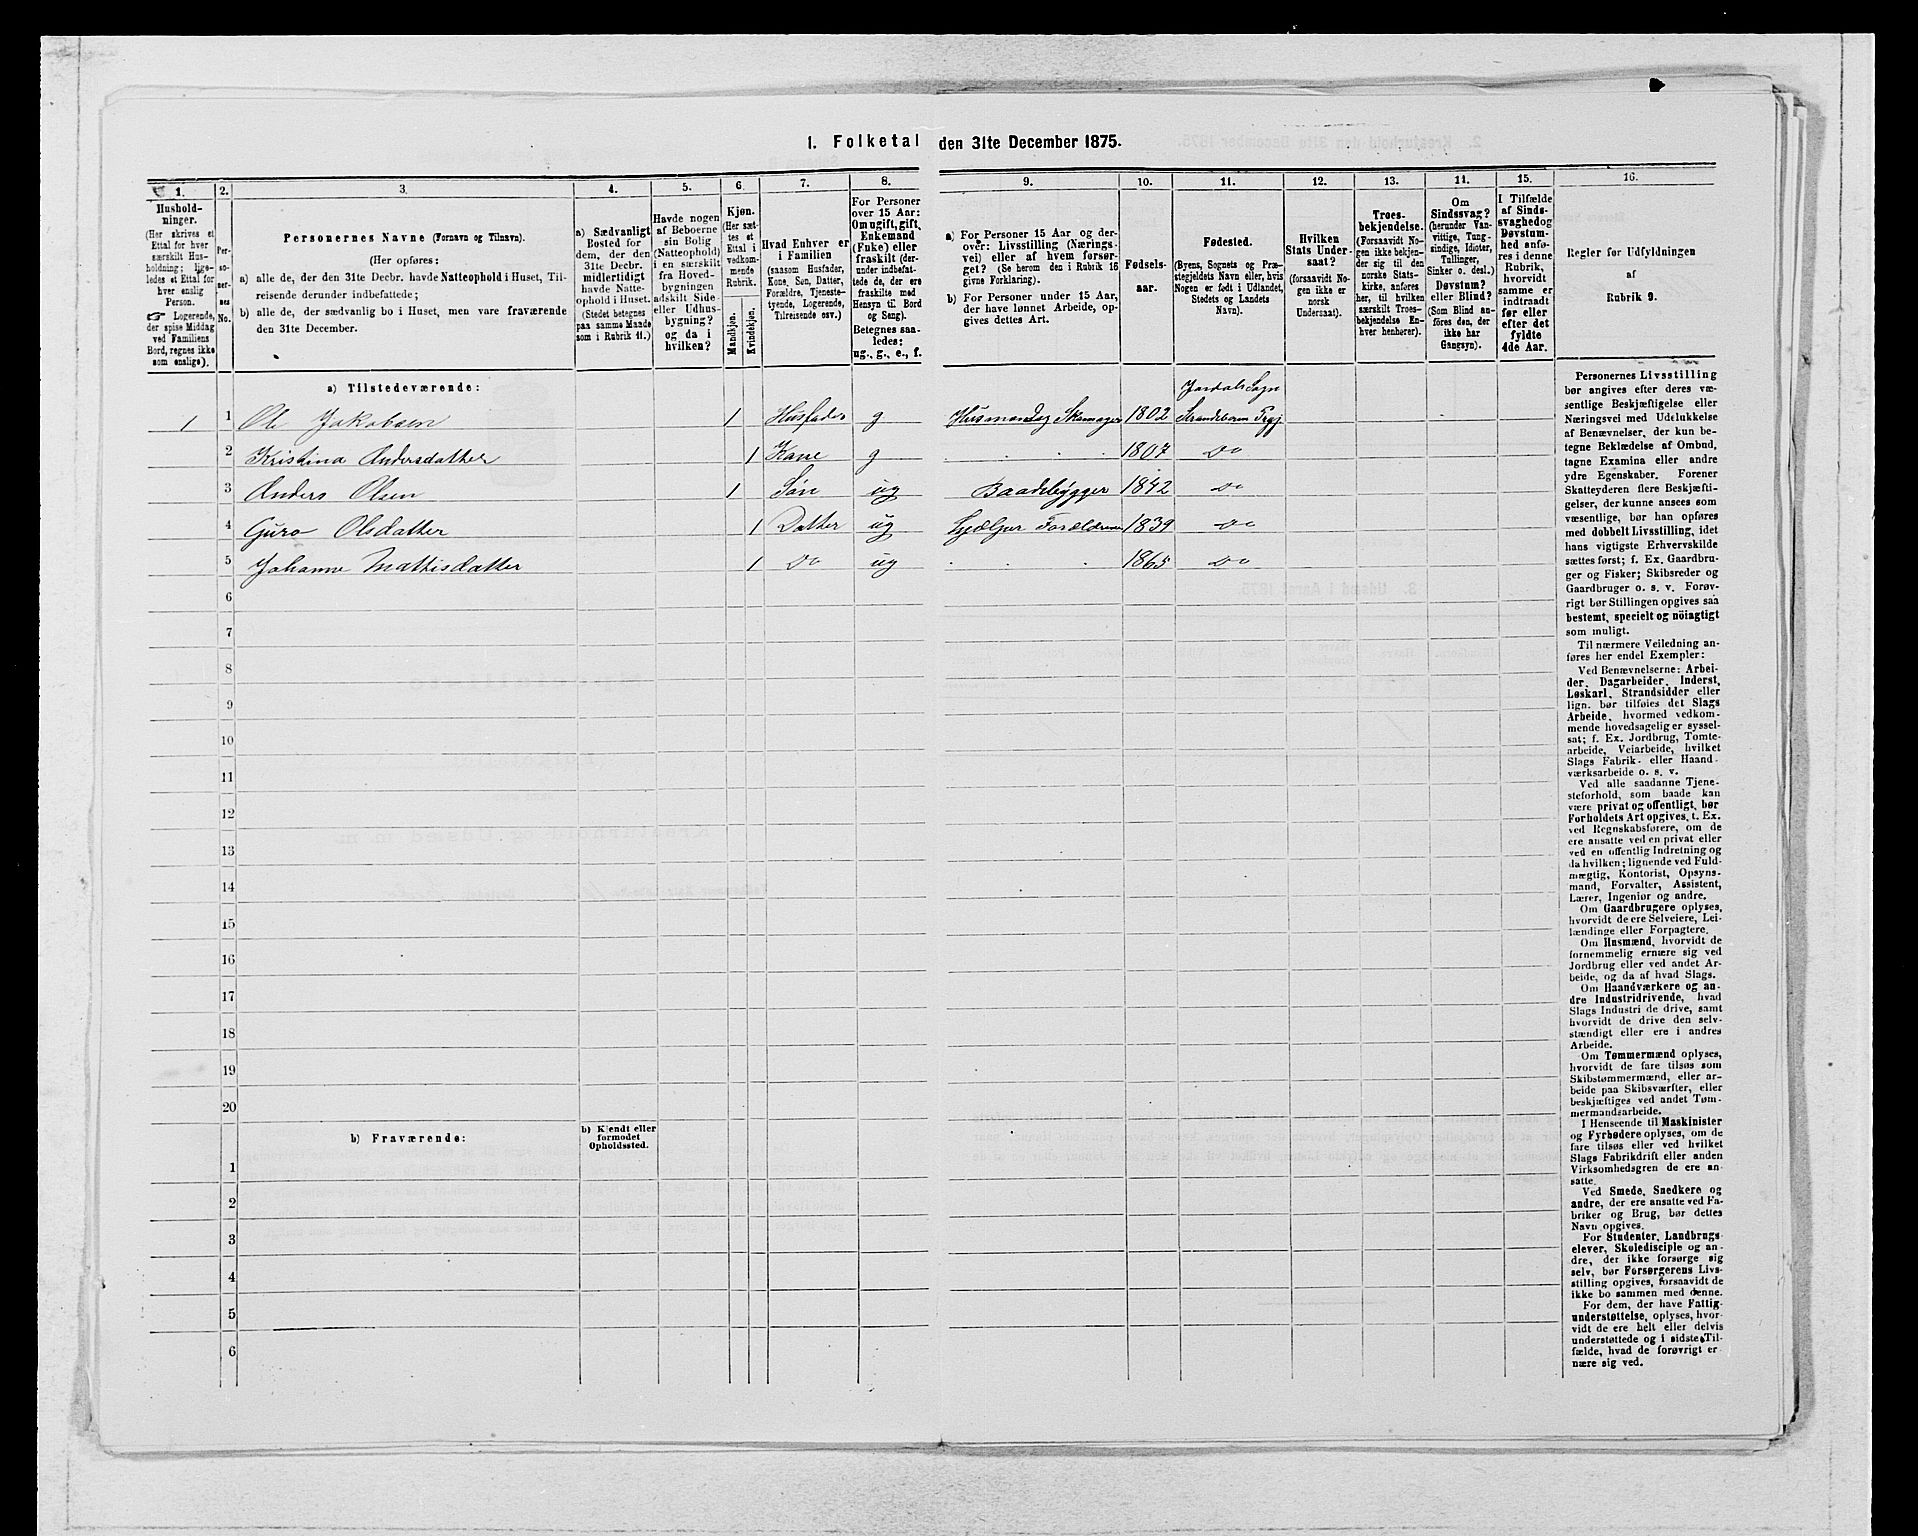 1. Folketal den 31te December 1875.
1.
2.
3.
4.
5.
6.
7.
8.
9.
10.
11.
12.
13.
14.
15.
16.
Hushold-
ninger.
(Her skrives et
Ettal for hver
særskilt Hus-
holdning; lige-
ledes et Ettal for
hver enslig
Person.
☞ Logerende,
der spise Middag
ved Familiens
Bord, regnes ikke
som enslige).
Per-
so-
ner-
nes
No.
Personernes Navne (Fornavn og Tilnavn).
(Her opføres:
a) alle de, der den 31te Decbr. havde Natteophold i Huset, Til-
reisende derunder indbefattede;
b) alle de, der sædvanlig bo i Huset, men vare fraværende
den 31te December.
a) Sædvanligt
Bosted for
dem, der den
31te Decbr.
midlertidigt
havde Natte-
ophold i Huset.
(Stedet betegnes
paa samme Maade
som i Rubrik 11.)
Havde nogen
af Beboerne
sin Bolig
(Natteophold)
i en særskilt
fra Hoved-
bygningen
adskilt Side-
eller Udhus-
bygning?
og da i
hvilken?
Kjøn.
(Her sæt-
tes et
Ettal i
vedkom-
mende
Rubrik.
Mandkjøn.
Kvindekjøn.
Hvad Enhver er
i Familien
(saasom Husfader,
Kone, Søn, Datter,
Forældre, Tjeneste-
tyende, Logerende,
Tilreisende osv.)
For Personer
over 15 Aar:
Om ugift, gift,
Enkemand
(Enke) eller
fraskilt (der-
under indbefat-
tede de, der ere
fraskilte med
Hensyn til Bord
og Seng).
Betegnes saa-
ledes:
ug., g., e., f.
a) For Personer 15 Aar og der-
over: Livsstilling (Nærings-
vei) eller af hvem forsør-
get? (Se herom den i Rubrik 16
givne Forklaring).
b) For Personer under 15 Aar,
der have lønnet Arbeide, op-
gives dettes Art.
Fødsels-
aar.
Fødested.
(Byens, Sognets og Præ-
stegjeldets Navn eller, hvis
Nogen er født i Udlandet,
Stedets og Landets
Navn).
Hvilken
Stats Under-
saat?
(forsaavidt No-
gen ikke er
norsk
Undersaat).
Troes-
bekjendelse.
(Forsaavidt No-
gen ikke bekjen-
der sig til den
norske Stats-
kirke, anføres
her, til hvilken
særskilt Troes-
bekjendelse En-
hver henhører).
Om
Sindssvag?
(herunder Van-
vittige, Tung-
sindige, Idioter,
Tullinger,
Sinker o. desl.)
Døvstum?
eller Blind?
(Som Blind an-
føres den, der
ikke har
Gangsyn).
I Tilfælde
af Sinds-
svaghed og
Døvstum-
hed anfø-
res i denne
Rubrik,
hvorvidt
samme er
indtraadt
før eller
efter det
fyldte
4de Aar.
Regler for Udfyldningen
af
Rubrik 9.
a) Tilstedeværende:
Sogn
1 1 Ole Jakobsen 1 Husfader g Husmand og Skomager 1802 Strandebarm Prgj.
2 Kristina Andersdatter 1 Kone g 1807 Do
3 Anders Olsen 1 Søn ug Baadebygger 1842 Do
4 Guro Olsdatter 1 Datter ug Hjælper Forældrene 1839 Do
5 Johanne Mattisdatter 1 Do ug 1865 Do
6
7
8
9
10
11
12
13
14
15
16
17
18
19
20
b) Fraværende:
b) Kjendt eller
formodet
Opholdssted.
1
2
3
4
5
6
Personernes Livsstilling
bør angives efter deres væ-
sentlige Beskjæftigelse eller
Næringsvei med Udelukkelse
af Benævnelser, der kun be-
tegne Beklædelse af Ombud,
tagne Examina eller andre
ydre Egenskaber. Forener
Skatteyderen flere Beskjæfti-
gelser, der kunne ansees som
væsentlige, bør han opføres
med dobbelt Livsstilling, idet
hans vigtigste Erhvervskilde
sættes først; f. Ex. Gaardbru-
ger og Fisker; Skibsreder og
Gaardbruger o. s. v. Forøv-
rigt bør Stillingen opgives saa
bestemt, specielt og nöiagtigt
som muligt.
Til nærmere Veiledning an-
føres her endel Exempler:
Ved Benævnelserne: Arbei-
der, Dagarbeider, Inderst,
Løskarl, Strandsidder eller
lign. bør tilføies det Slags
Arbeide, hvormed vedkom-
mende hovedsagelig er syssel-
sat; f. Ex. Jordbrug, Tomte-
arbeide, Veiarbeide, hvilket
Slags Fabrik- eller Haand-
værksarbeide o. s. v.
Ved alle saadanne Tjene-
steforhold, som baade kan
være privat og offentligt, bør
Forholdets Art opgives, t. Ex.
ved Regnskabsførere, om de
ere ansatte ved en privat eller
ved en offentlig Indretning og
da hvilken; lignende ved Fuld-
mægtig, Kontorist, Opsyns-
mand, Forvalter, Assistent,
Lærer, Ingeniør og andre.
Om Gaardbrugere oplyses,
hvorvidt de ere Selveiere, Lei-
lændinge eller Forpagtere.
Om Husmænd, hvorvidt de
fornemmelig ernære sig ved
Jordbrug eller ved andet Ar-
beide, og da af hvad Slags.
Om Haandværkere og an-
dre Industridrivende, hvad
Slags Industri de drive, samt
hvorvidt de drive den selv-
stændigt eller ere i andres
Arbeide.
Om Tømmermænd oplyses,
hvorvidt de fare tilsøs som
Skibstømmermænd, eller ar-
beide paa Skibsværfter, eller
beskjæftiges ved andet Tøm-
mermandsarbeide.
I Henseende til Maskinister
og Fyrbødere oplyses, om de
fare tilsøs eller ved hvilket
Slags Fabrikdrift eller anden
Virksomhedsgren de ere an-
satte.
Ved Smede, Snedkere og
andre, der ere ansatte ved Fa-
briker og Brug, bør dettes
Navn opgives.
For Studenter, Landbrugs-
elever, Skoledisciple og an-
dre, der ikke forsørge sig
selv, bør Forsørgerens Livs-
stilling opgives, forsaavidt de
ikke bo sammen med denne.
For dem, der have Fattig-
understøttelse, oplyses, hvor-
vidt de ere helt eller delvis
understøttede og i sidste Til-
fælde, hvad de forøvrigt er-
nære sig ved.